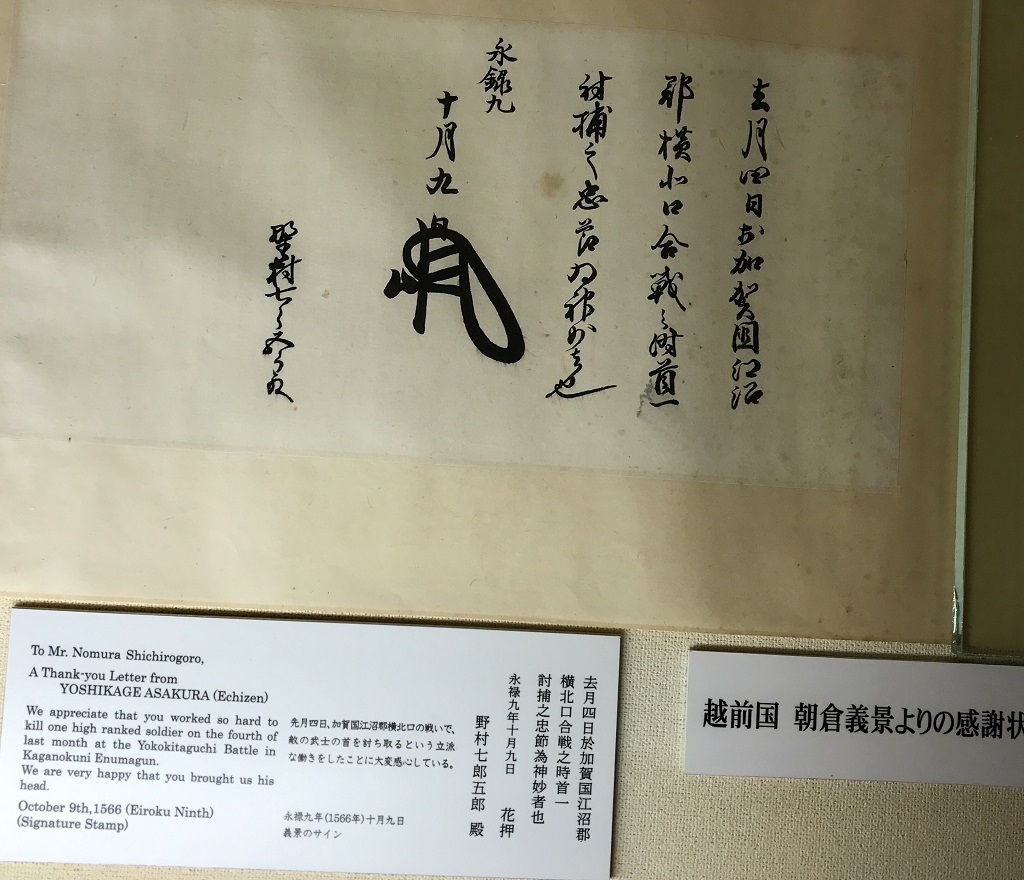 去月四日於加賀国江沼
郡横北口合戦之時首一
討捕之忠節為神妙者也
永禄九
十月九
野村七郎五郎殿
To Mr. Nomura Shichirogoro,
A Thank-you Letter from
YOSHIKAGE ASAKURA (Echizen)
We appreciate that you worked so hard to
kill one high ranked soldier on the fourth of
last month at the Yokokitaguchi Battle in
Kaganokuni Enumagun.
We are very happy that you brought us his
head.
October 9th,1566 (Eiroku Ninth)
(Signature Stamp)
先月四日、加賀国江沼郡横北口の戦いで、
敵の武士の首を討ち取るという立派
な働きをしたことに大変感心している。
永禄九年(1566年)十月九日
義景のサイン
去月四日於加賀国江沼郡
横北口合戦之時首一
討捕之忠節為神妙者也
永禄九年十月九日 花押
野村七郎五郎 殿
越前国 朝倉義景よりの感謝状